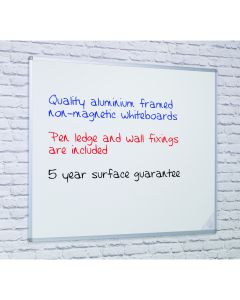 Quality aluminium framed
non-magnetic whiteboards
Pen ledge and wall fixings
are included
5 year surface guarantee